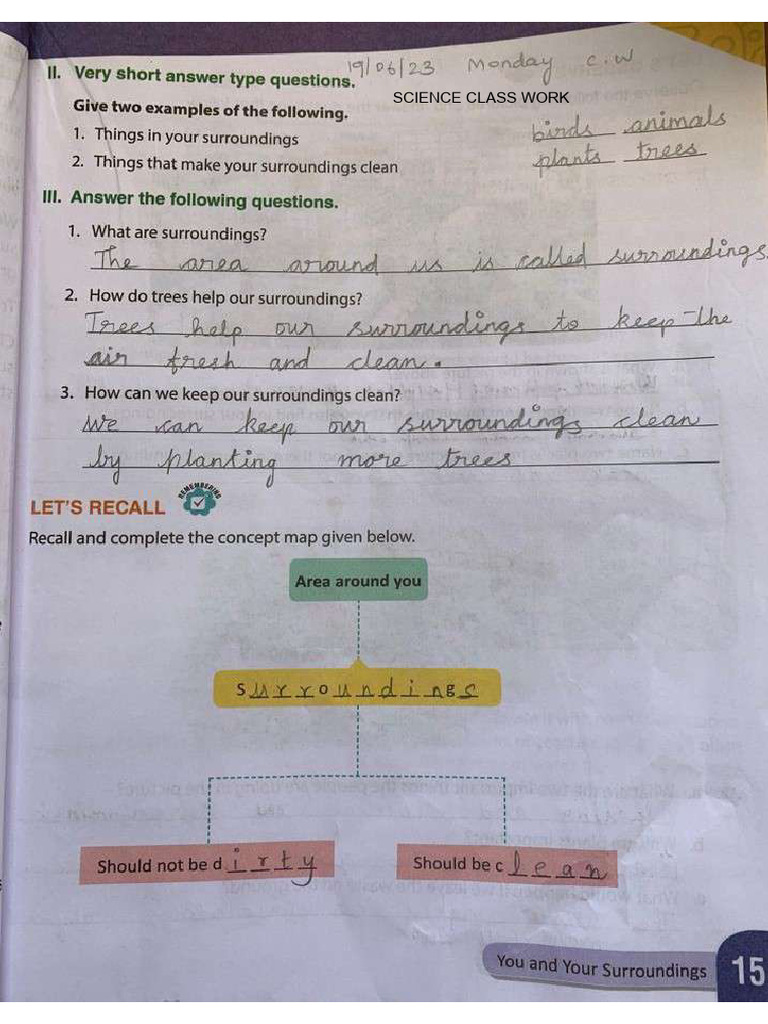 19/06/23 Monday C.W
II. Very short answer type questions.
SCIENCE CLASS WORK
Give two examples of the following.
1. Things in your surroundings birds animals
2. Things that make your surroundings clean plants trees
III. Answer the following questions.
1. What are surroundings?
The area around us is called surroundings.
2. How do trees help our surroundings?
Trees help our surroundings to keep the
air fresh and clean.
3. How can we keep our surroundings clean?
We can keep our surroundings clean
by planting more trees
LET'S RECALL
REMEMBERING
Recall and complete the concept map given below.
Area around you
Surroundings
Should not be dirty
Should be clean
You and Your Surroundings 15